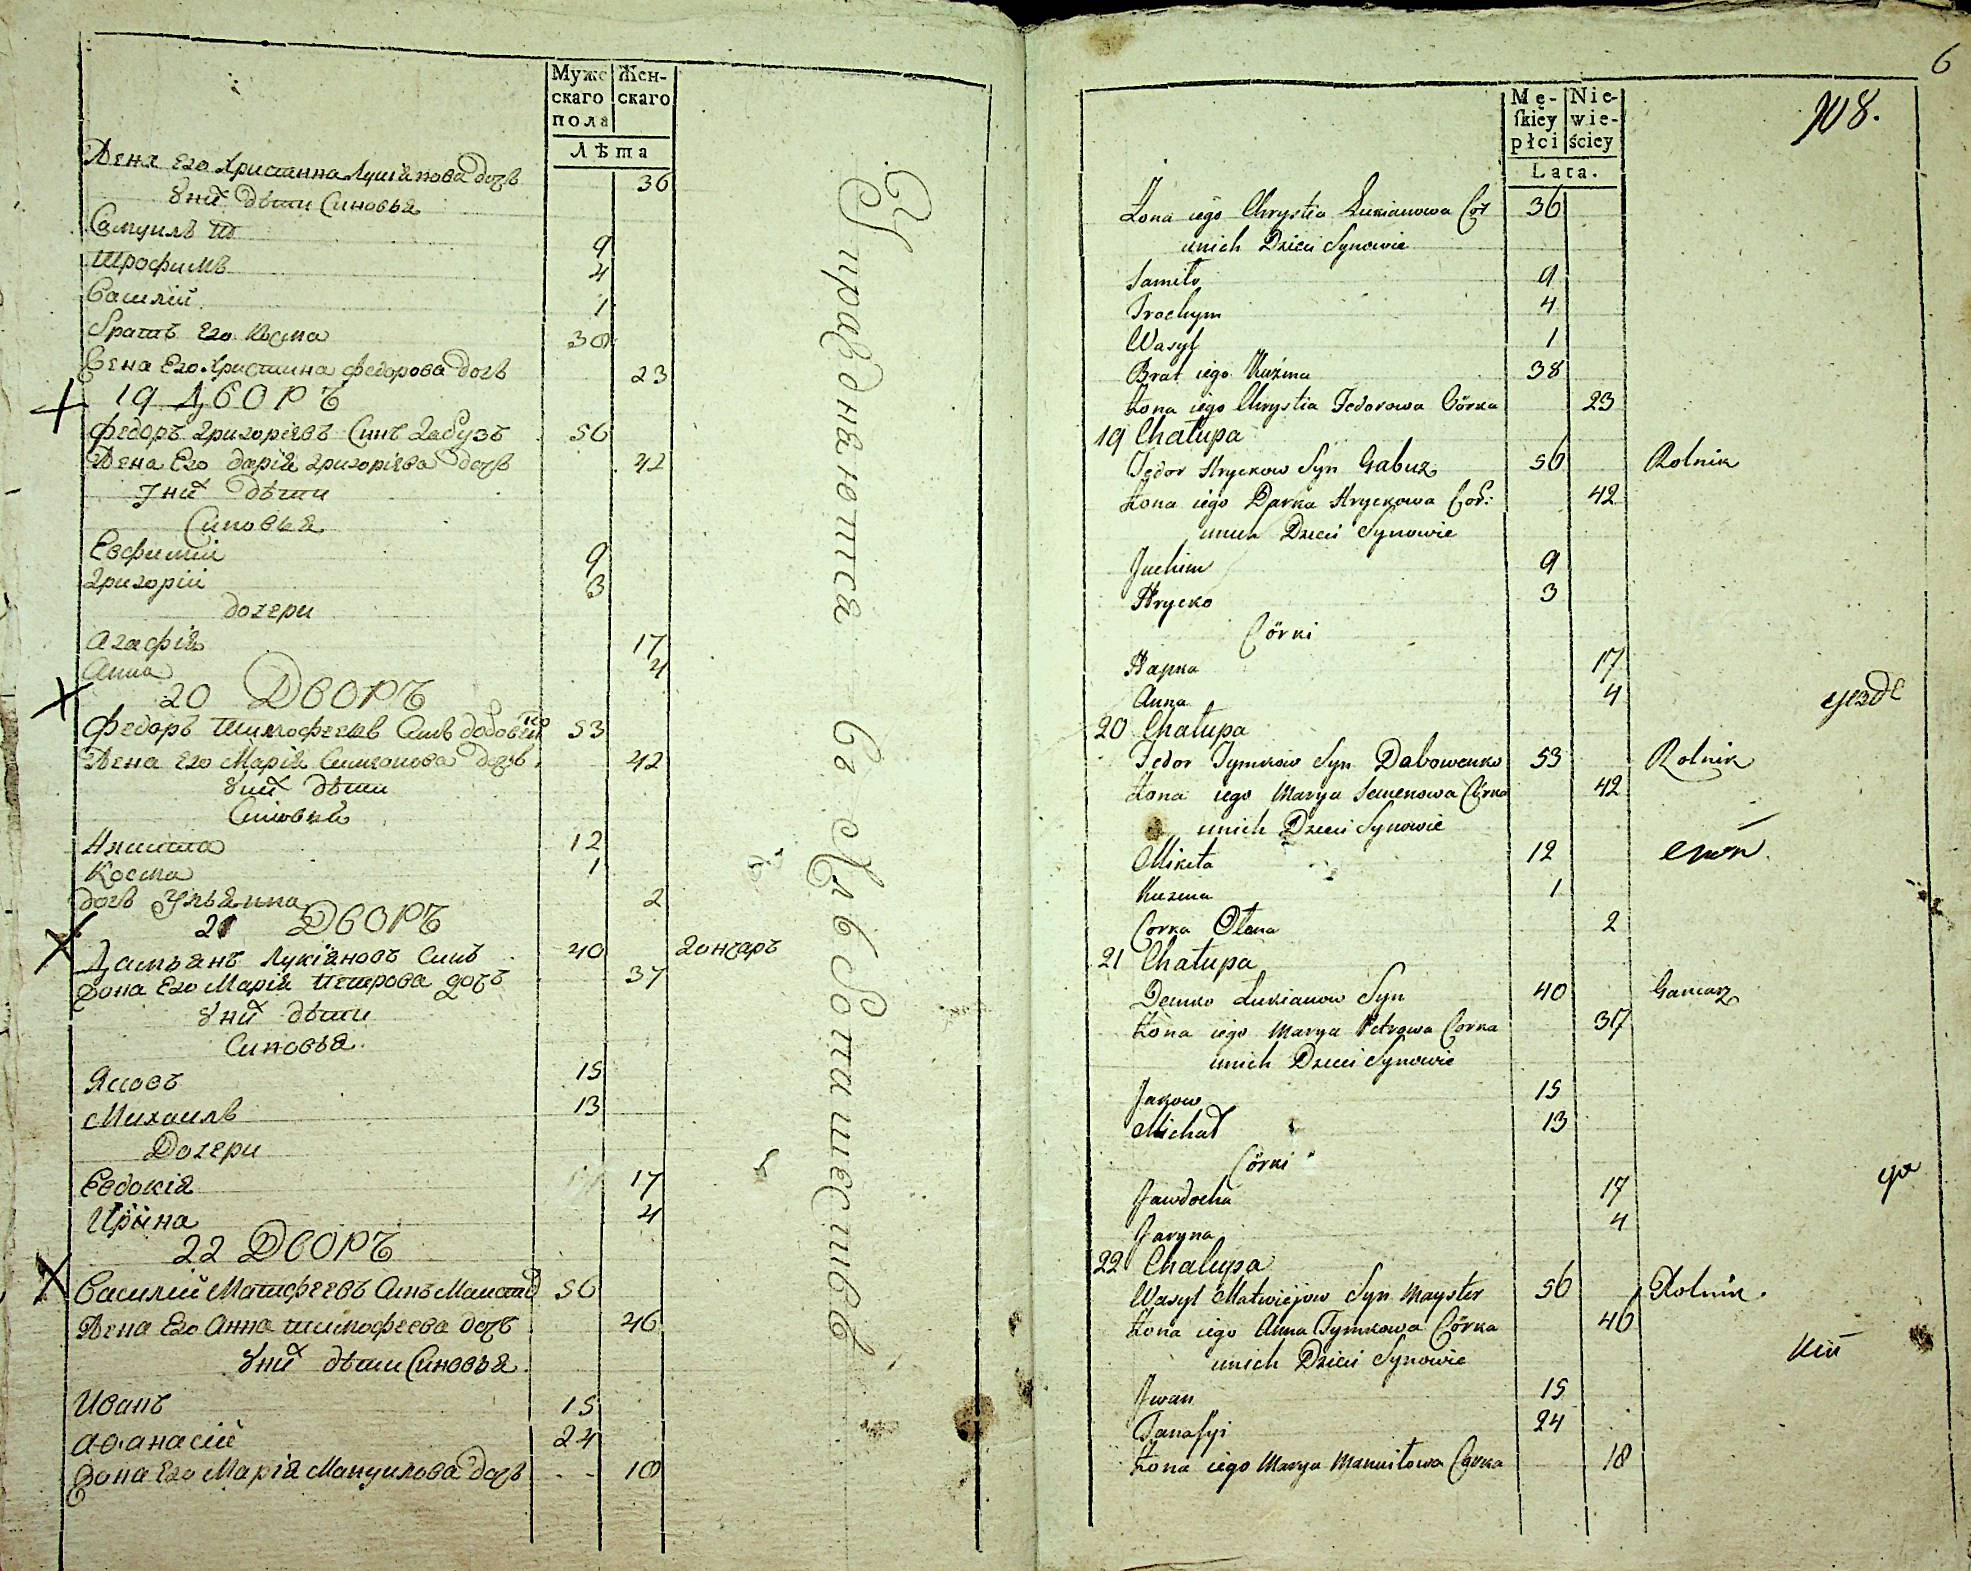 Муже
скаго
пола
Жен-
скаго
Лѣта
Жена Его Христинна Лукіянова дочь 36
Уних дѣти Синовья
Самуилъ 9
Трофимъ 4
Василій 1
Братъ Его Косма 38
Жена Его Христина Федорова дочь 23
19 ДВОРЪ
Федоръ Григоріевъ Синъ Габузъ 56
Жена Его Дарія Григоріева дочь 42
Уних дѣти
Синовья
Евфимій 9
Григорій 3
дочери
Агафія 17
Анна 4
20 ДВОРЪ
Федоръ Тимофеевъ Синъ 53
Жена Его Марія Симеонова дочь 42
Уних дѣти
Синовья
Никита 12
Косма 1
дочь Ульянна 2
21 ДВОРЪ
Дамьянъ Лукіяновъ Синъ 40 Гончаръ
Жона Его Марія Петрова дочь 37
Уних дѣти
Синовья
Яковъ 15
Михаилъ 13
Дочери
Евдокія 17
Ирина 4
22 ДВОРЪ
Василій Матфеевъ Синъ 56
Жена Его Анна Тимофеева дочь 46
Уних дѣти Синовья
Иванъ 15
Афанасій 24
Жона Его Марія Мануилова дочь 18
6
Mę-
skiey
płci
Nie-
wie-
ściey
Lata.
108.
Żona iego Chrystia Łukianowa Cór 36
unich Dzieci Synowie
Samiło 9
Trochym 4
Wasyl 1
Brat iego Kuźma 38
Żona iego Chrystia Fedorowa Córka 23
19 Chałupa
Fedor Hryckow Syn Gabuz 56 Rolnik
Żona iego Darka Hryckowa Cor: 42
unich Dzieci Synowie
Juchim 9
Hrycko 3
Córki
Hapka 17
Anna 4
20 Chałupa
Fedor Tymkow Syn Dabowenko 53 Rolnik
Żona iego Marya Semenowa Córka 42
unich Dzieci Synowie
Mikita 12
Kuzma 1
Corka Olena 2
21 Chałupa
Demko Łukianow Syn 40 Garncarz
Żona iego Marya Petrowa Corka 37
unich Dzieci Synowie
Jakow 15
Michał 13
Córki
Jawdocha 17
Jaryna 4
22 Chałupa
Wasyl Matwiejow Syn Mayster 56 Rolnik.
Żona iego Anna Tymkowa Córka 46
unich Dzieci Synowie
Jwan 15
Panasyi 24
Żona iego Marya Manuiłowa Corka 18